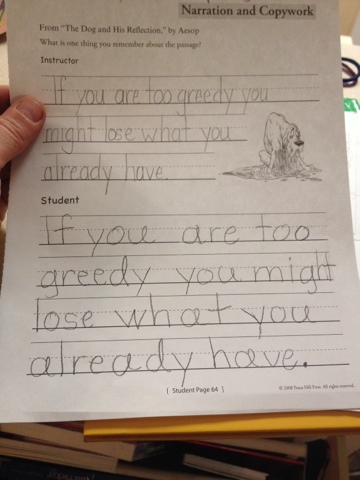 Narration and Copywork
From "The Dog and His Reflection," by Aesop
What is one thing you remember about the passage?
Instructor
If you are too greedy you
might lose what you
already have.
Student
If you are too
greedy you might
lose what you
already have.
[ Student Page 64 ]
© 2008 Peace Hill Press. All rights reserved.